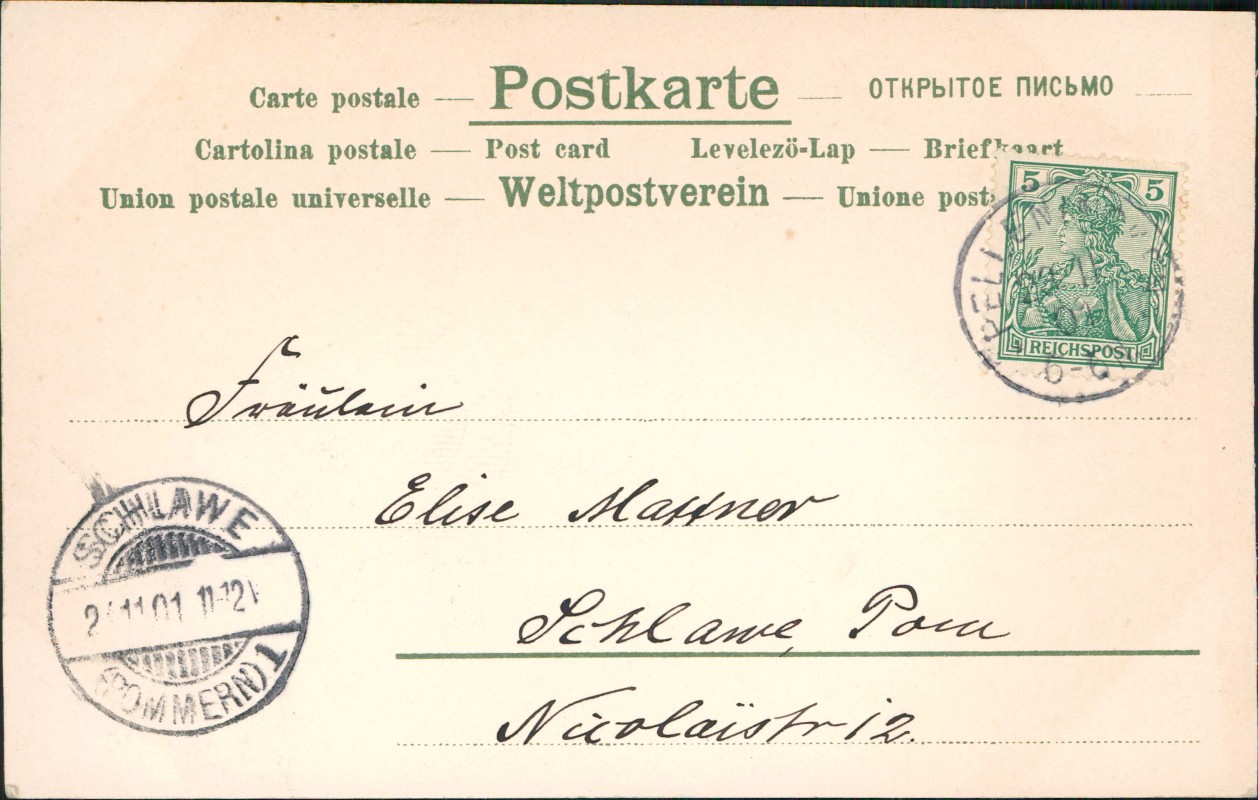 Carte postale — Postkarte — ОТКРЫТОЕ ПИСЬМО
Cartolina postale — Post card Levelezö-Lap — Briefkaart
Union postale universelle — Weltpostverein — Unione post
5 5
REICHSPOST
6-6
Fräulein
Elise Mattner
Schlawe, Pom
Nicolaïstr 12.
SCHLAWE
11.01 11-12V
(POMMERN) 1